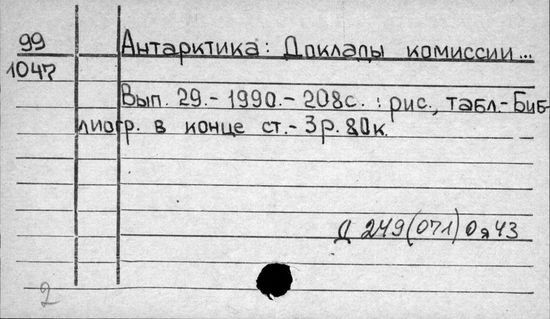 99
1047
Антарктика: Доклады комиссии...
Вып. 29.-1990.-208с. : рис., табл.-Биб-
лиогр. в конце ст.-3р.80к.
Д 249(071)0я43
2